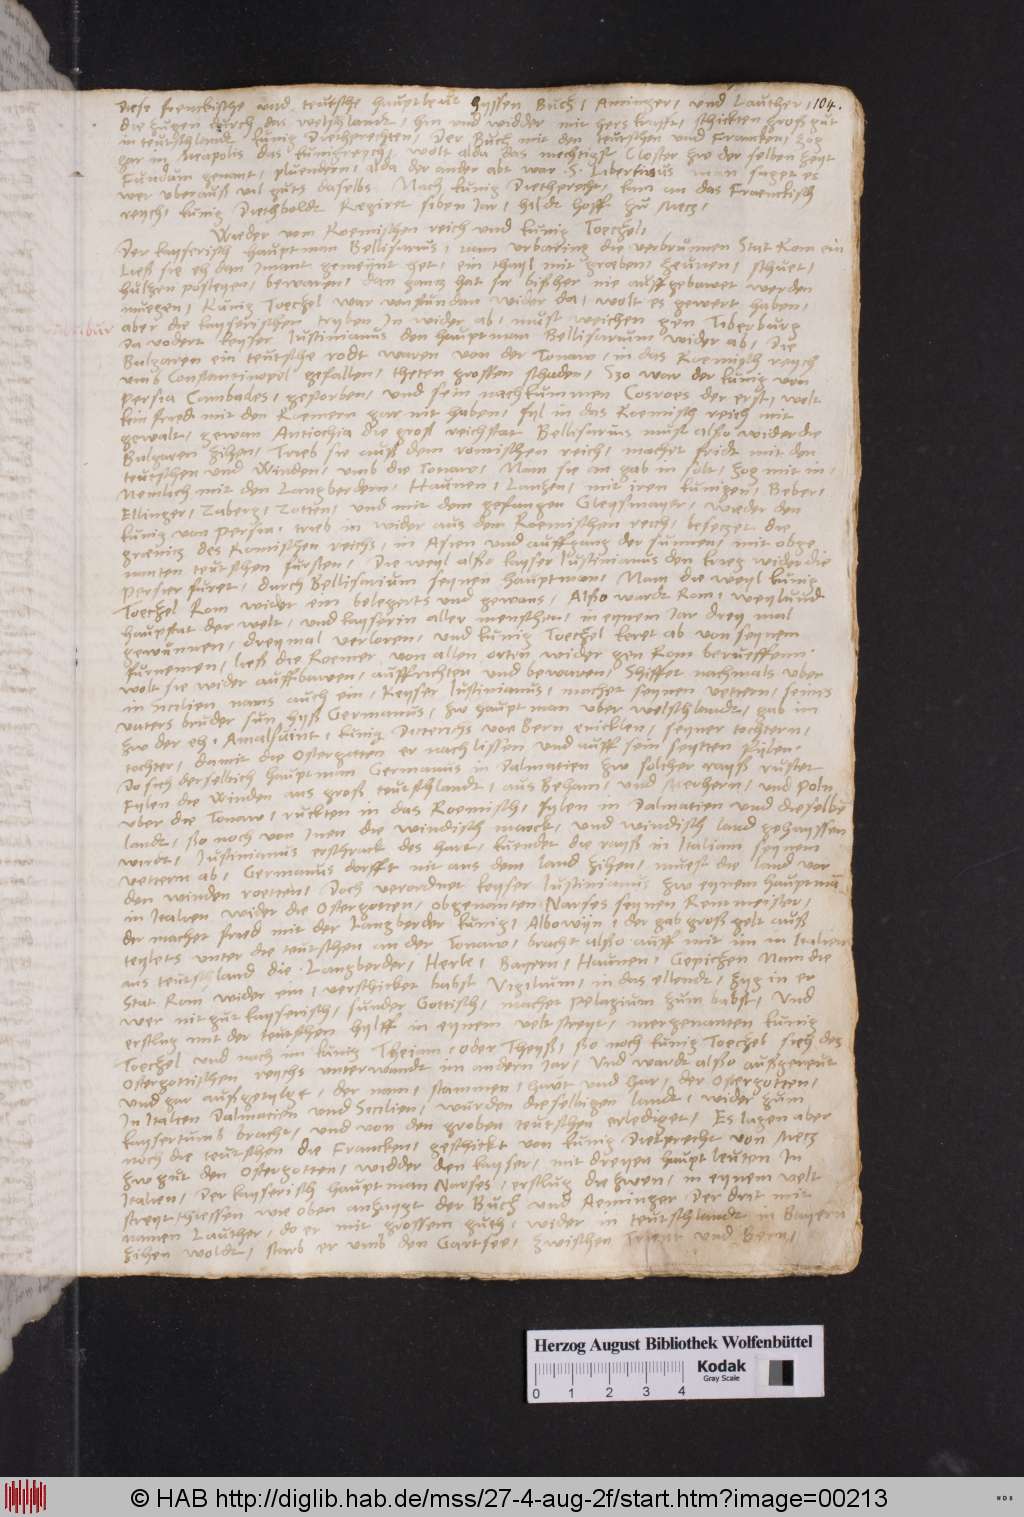 Diese frenckische und teutsche hauptleut hyssen Buch / Aminger / und Lauther / 104.
die zugen durch das welschlandt / hin und widder mit hers krafft / schickten groß gut
in teutschlandt kunig Dietheprechten / Der Buch mit den teutschen und Francken / zog
gar in Neapolis das kunigreych / wolt alda das mechtigst Closter zw der selben zeyt
Fundum genant / pluendern / alda der ander abt war S. Libertinus man saget es
wer uberauß vil guts daselbs. Nach kunig Dietheprecht / kam an das Frenckisch
reych / kunig Diethboldt Regiret siben Jar / hildt hoff zu Metz /
Wieder vom Roemischen reich und kunig Toechel /
Der kayserisch hauptman Bellisarius / nam urbaring die verbrunnen Stat Rom ein
Ließ sie eh dan jmant gemeynt het / ein thayl mit graeben / zeunen / schuet /
hultzen posteyen / bewaren / dan gantz hat sie bißher nie auffgebawet werden
muegen / Kunig Toechel war vonstundan wider da / wolt es gewert haben /
aber die kayserischen tryben In wider ab / must weichen gen Tiberburg
Da vodert keyser Justinianus den hauptman Bellisarium wider ab / Die
Bulgaren ein teutsche rodt waren von der Tonaw / in das Roemisch reych
umb Constantinopol gefallen / theten grossen schaden / Szo war der kunig von
Persia Cambades / gestorben / und sein nachkummen Cosroes der erst / wolt
kein fried mit den Roemern gar nit haben / fyl in das Roemisch reich mit
gewalt / gewan Antiochia die groß reichstat Bellisarius must also wider die
Bulgaren zihen / Trieb sie auß dem romischen reich / machet fridt mit den
teutschen und Winden / umb die Tonaw / Nam sie an gab in solt / zog mit in /
Nemlich mit den Langberdern / Haunen / Lantzen / mit iren kunigen / Beber /
Ellinger / Zaberg / Zotten / und mit dem gefangen Gleysmayer / wieder den
kunig von Persia / trieb in wider aus dem Roemischen reich / besetzet die
grienitz des Romischen reichs / in Asien und auffgang der sunnen / mit obge
nanten teutschen fursten / Die weyl also kayser Justinianus den krieg wider die
Persier furet / durch Bellisarium seynen hauptman / Nam die weyl kunig
Toechel Rom wider ein belegerts und gewans / Also wardt Rom / weylundt
hauptstat der welt / und kayserin aller menschen / in eynem Jar drey mal
gewunnen / dreymal verloren / und kunig Toechel keret ab von seynem
furnemen / ließ die Roemer von allen orten wider gen Rom berueffenn /
wolt sie wider auffbawen / auffrichten und bewaren / Schiffet nachmals uber
in Sicilien nams auch ein / Keyser Justinianus / machet seynen vettern / seins
vaters bruder sun hyß Germanus / zw hauptman uber welschlandt / gab im
zw der eh / Amalsuint / kunig Dieterichs von Bern enicklen / seyner tochtern /
tochter / damit die Ostergotten er nachlissen und auff sein seytten fylen /
Do sich derselbich hauptman Germanus in Dalmatien zw solcher rayß rustet
Fylen die Winden aus groß teutschlandt / aus Beham / und Merhern / und Poln
uber die Tonaw / ruckten in das Roemisch / fylen in Dalmatien und dieselbe
landt / so noch von Inen die windisch marck / und windisch land gehayssen
wirdt / Justinianus erschrack des hart / kuendet die rayß in Italiam seynem
vettern ab / Germanus dorfft nit aus dem land zihen / muest die land vor
den winden retten / Doch verordnet keyser Justinianus zw eynem hauptman
in Italien wider die Ostergotten / obgenanten Narses seynen Rentmeister /
der machet fried mit der Langberder kunig / Albowyn / der gab groß gelt auß
teylets unter die teutschen an der Tonaw / bracht also auff mit im in Italien
aus teutschland die Langberder / Herle / Bayern / Haunen / Gepichen Nam die
Stat Rom wider ein / verschicket babst Vigilium / in das ellendt / zyg in er
wer nit gut kayserisch / sunder Gottisch / machet Pelagium zum babst / Und
erschlug mit der teutschen hylff in eynem veltstreyt / mergenanten kunig
Toechel und nach im kunig Theiam / oder Theyß / so noch kunig Toechel sich des
Ostergottischen reychs unterwandt im andern Jar / Und wardt also außgereut
und gar außgetylgt / der nam / stammen / hawt und har / der Ostergotten /
In Italien Dalmacien und Secilien / wurden dieselbigen landt / wider zum
kaysertumb bracht / und von den groben teutschen erlediget / Es lagen aber
noch die teutschen die Francken / geschickt von kunig Dietprecht von Metz
zw gut den Ostergotten / widder den kayser / mit dreyen hauptleuten In
Italien / Der kayserisch hauptman Narses / erschlug die zwen / in eynem velt
streyt hiessen wie oben anzaygt der Buch und Aeminger / Der drit mit
namen Lauther / do er mit grossem guth / wider in teutschlandt in Bayern
zihen woldt / starb er umb den Gartsee / zwischen Trient und Bern /
Herzog August Bibliothek Wolfenbüttel
Kodak
Gray Scale
0 1 2 3 4
© HAB http://diglib.hab.de/mss/27-4-aug-2f/start.htm?image=00213